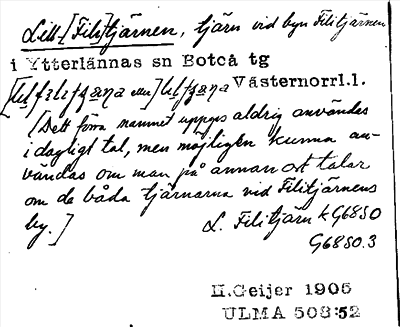 Lill-[Fili]tjärnen, tjärn vid byn Filitjärnen
i Ytterlännas sn Boteå tg
Västernorrl.l.
[Det förra namnet uppges aldrig användas
i dagligt tal, men möjligen kunna an-
vändas om man på annan ort talar
om de båda tjärnarna vid Filitjärnens
by.] L. Filitjärn k G6850
G6850.3
H.Geijer 1905
ULMA 508:52